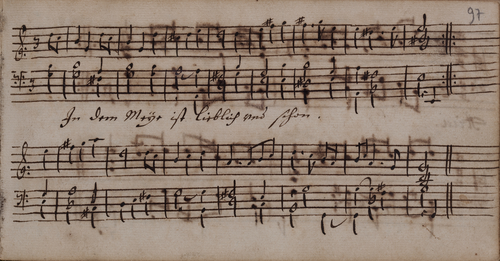 97
In dem Meÿe ist lieblich und schon.